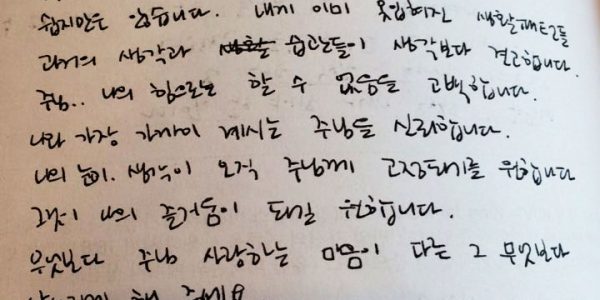 쉽지만은 않습니다. 내게 이미 옷입혀진 생활패턴들
과거의 생각과 습관들이 생각보다 견고합니다.
주님.. 나의 힘으로는 할 수 없음을 고백합니다.
나와 가장 가까이 계시는 주님을 신뢰합니다.
나의 눈이. 생각이 오직 주님께 고정되기를 원합니다
그것이 나의 즐거움이 되길 원합니다.
무엇보다 주님 사랑하는 마음이 다른 그 무엇보다
해 주세요